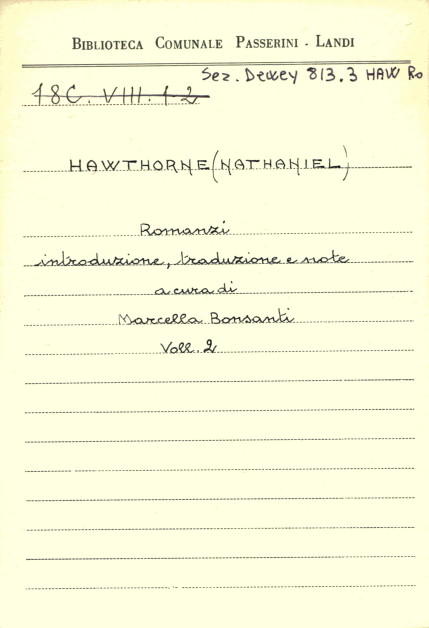 BIBLIOTECA COMUNALE PASSERINI - LANDI
Sez. Dewey 813.3 HAW Ro
18C. VIII. 12
HAWTHORNE (NATHANIEL)
Romanzi
introduzione, traduzione e note
a cura di
Marcella Bonsanti
Voll. 2